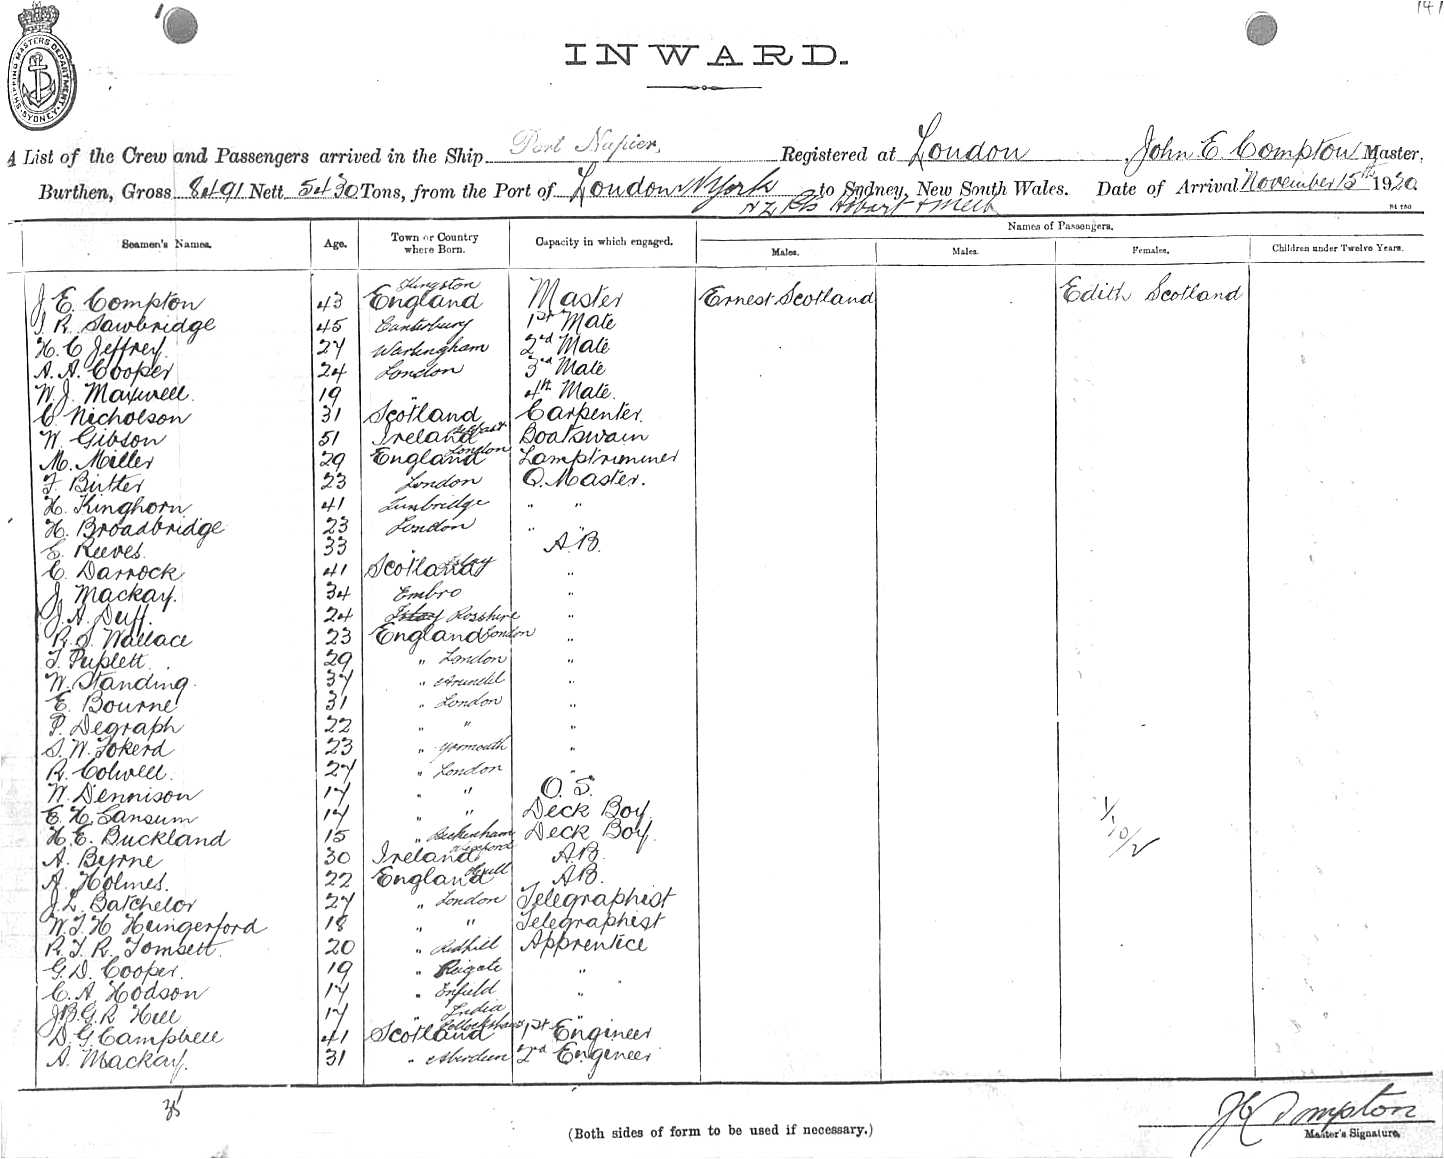 141
SHIPPING MASTERS DEPARTMENT SYDNEY
INWARD.
A List of the Crew and Passengers arrived in the Ship Port Napier, Registered at London John E. Compton Master,
Burthen, Gross 8491 Nett 5430 Tons, from the Port of London N York to Sydney, New South Wales. Date of Arrival November 15th 1920
N Z Pts Hobart + Melb
Seamen's Names. Age. Town or Country where Born. Capacity in which engaged. Names of Passengers.
Males. Males. Females. Children under Twelve Years.
J. E. Compton 43 Kingston England Master Ernest Scotland Edith Scotland
J. R. Sawbridge 45 Canterbury 1st Mate
H. C. Jeffrey 27 Warlingham 2nd Mate
A. A. Cooper 24 London 3rd Mate
W. J. Maxwell. 19 " 4th Mate.
C. Nicholson 31 Scotland Carpenter.
W. Gibson 51 Ireland Belfast Boatswain
M. Miller 29 England London Lamptrimmer
F. Butler 23 London Q. Master.
H. Kinghorn 41 Tunbridge " "
H. Broadbridge 23 London " "
E. Reeves. 33 " A.B.
C. Darrock 41 Scotland Islay "
J. Mackay. 34 Embro "
J. A. Duff. 24 Rosshire "
R. S. Wallace 23 England London "
T. Puplett. 29 " London "
W. Standing. 37 " Arundel "
E. Bourne 31 " London "
P. Degraph 22 " " "
S. W. Tokerd 23 " Yarmouth "
R. Colwell. 27 " London "
W. Dennison 17 " " O. S.
E. H. Sansum 17 " " Deck Boy.
H. E. Buckland 15 " Beckenham Deck Boy.
A. Byrne 30 Ireland Wexford A.B.
A. Holmes. 22 England Hull A.B.
J. L. Batchelor 27 " London Telegraphist
W. T. H Hungerford 18 " " Telegraphist
R. T. R. Tomsett. 20 " Redhill Apprentice
G. D. Cooper. 19 " Reigate "
C. A. Hodson 17 " Enfield "
J. B. G. R Hill 17 " India "
D. G. Campbell 41 Scotland Pollockshaws 1st Engineer
A. Mackay. 31 " Aberdeen 2nd Engineer
1/10/2
35
J E Compton
Master's Signature.
(Both sides of form to be used if necessary.)